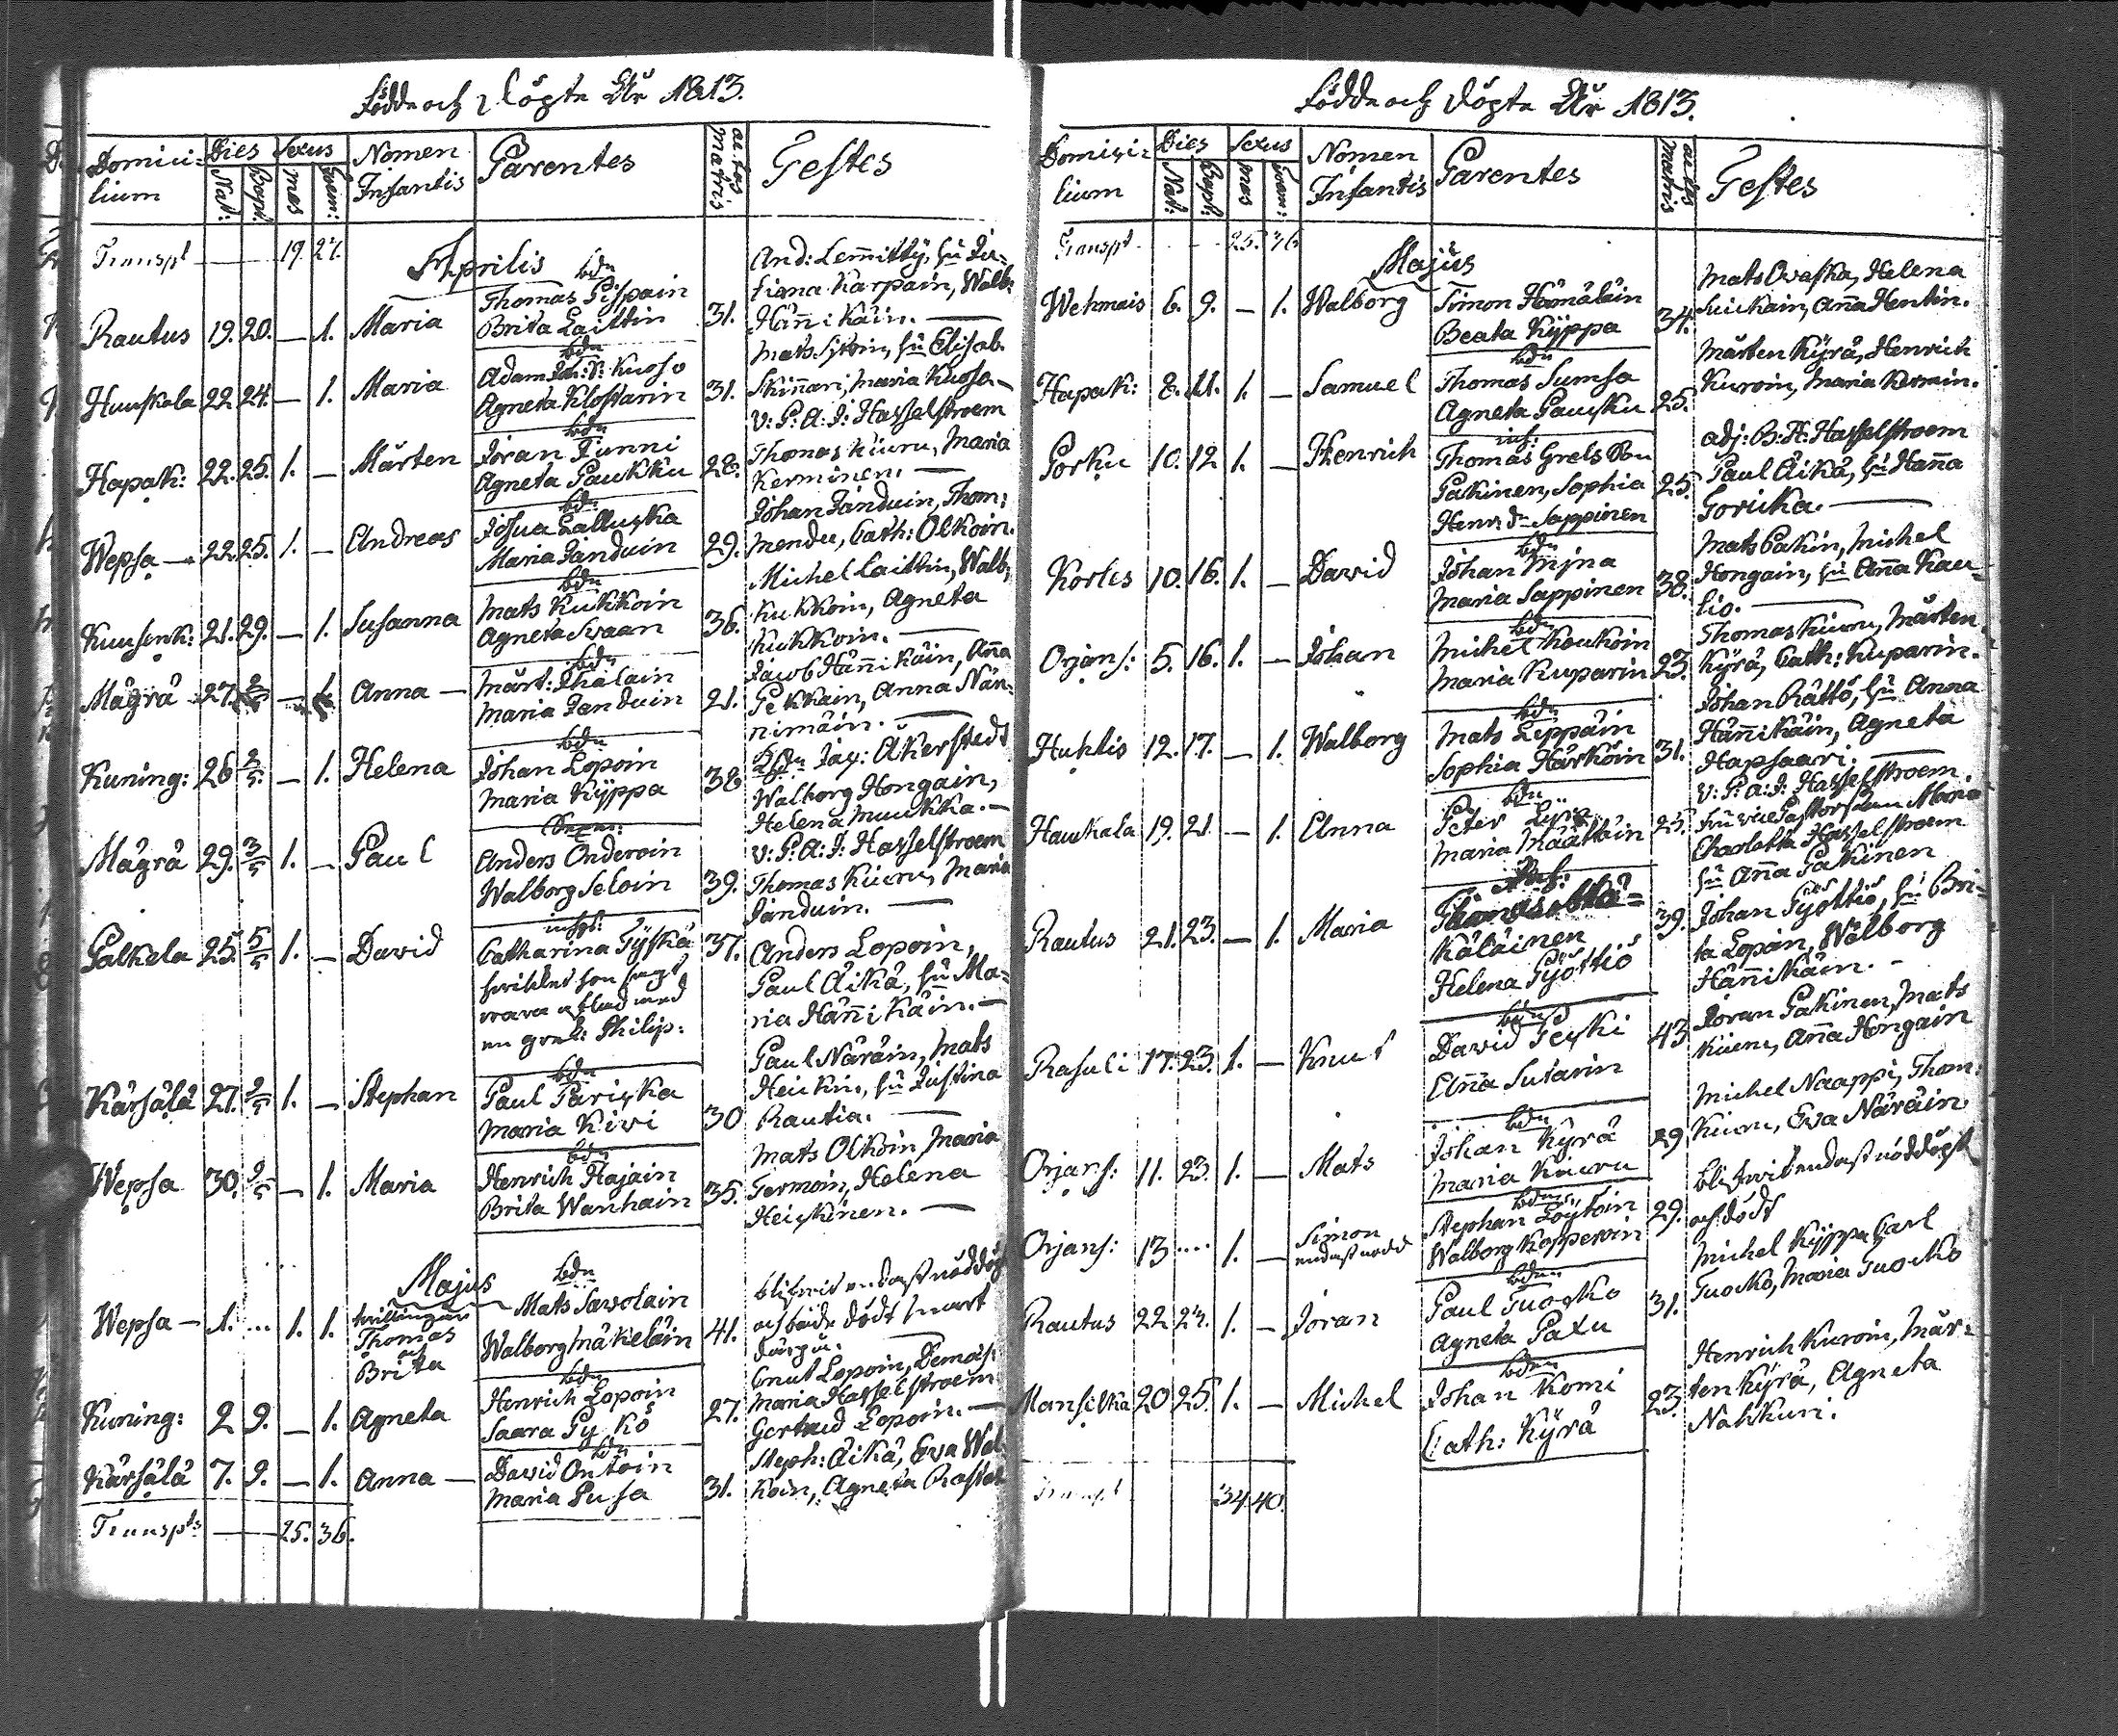 Födde och Döpte År 1813.
Domicilium Dies Nat: Bapt: Sexus mas Foem: Nomen Infantis Parentes aetas matris Testes
Transpt — 19. 27.
Aprilis
Rautus 19. 20. — 1. Maria
bdn Thomas Pispain
Brita Laittin 31.
And: Lemitty, hu Ju-
liana Karpain, Walb:
Hännikäin. —
Huuhkala 22. 24. — 1. Maria
bdn Adam Joh: S: Kuosa
Agneta Klostarin 31.
Mats , hu Elisab.
Skinnari, Maria Kuosa. —
Hapak: 22. 25. 1. — Mårten
bdn Jöran Junni
Agneta Paukku 28.
V: P: A: J: Hasselstroem
Thomas Kiuru, Maria
Kerminen. —
Wepsa — 22. 25. 1. — Andreas
bdn Josua Lalluska
Maria Janduin 29.
Johan Janduin, Thom:
Mendu, Cath: Olkoin.
Kuusenk: 21. 29. — 1. Susanna
bdn Mats Kukkoin
Agneta Svaan 36.
Michel Laittin, Walb:
Kukkoin, Agneta
Kukkoin. —
Mägrä 27. 2/5 — 1. Anna —
bdn Mårt: Ihalain
Maria Janduin 21.
Jacob Hännikäin, Anna
Pekkain, Anna Nän-
nimäin. —
Kuning: 26 2/5. — 1. Helena
bdn Johan Lopoin
Maria Kyppa 38
Jag: Åkerstedt
Walborg Hongain,
Helena Muukka. —
Mägrä 29. 3/5 1. — Paul
Anders Onderoin
Walborg Seloin 39.
V: P: A: J: Hasselstroem
Thomas Kiuru, Maria
Janduin. —
Palkela 25. 5/5 1. — David
inhs: Catharina Tyskä, 37.
hwilket hon sagt
wara aflad med
en Philip:
Anders Lopoin,
Paul Äikä, hu Ma-
ria Hännikäin. —
Kärsälä 27. 9/5 1. — Stephan
bdn Paul Pariska
Maria Kiwi 30
Paul Näräin, Mats
Heickin, hu Justina
Rautia. —
Wepsa 30. 9/5 — 1. Maria
bdn Henrich Hajain
Brita Wanhain 35.
Mats Olkoin, Maria
Termoin, Helena
Heiskinen. —
Majus
Wepsa — 1. ... 1. 1. twillingar
Thomas
och
Brita
bdn Mats Sawolain
Walborg Mäkeläin 41.
blifwit endast nöddöp
och både dödt snart
därpå.
Kuning: 2 9. — 1. Agneta
bdn Henrich Lopoin
Saara Pykö 27.
Cnut Lopoin, Demois:
Maria Hasselstroem
Gertrud Lopoin. —
Kärsälä 7. 9. — 1. Anna —
bdn David Ontoin
Maria Pusa 31.
Steph: Äikä, Eva Wal-
koin, Agneta Rastas
Transpt: — 25. 36.
Födde och Döpte År 1813.
Domicilium Dies Nat: Bapt: Sexus mas Foem: Nomen Infantis Parentes aetas matris Testes
Transpt 25. 36
Majus
Wehmais 6. 9. — 1. Walborg
Simon Hämäläin
Beata Kyppa 34.
Mats Owaska, Helena
Suickain, Anna Hentin.
Hapak: 8. 11. 1. — Samuel
bdn Thomas Sumsa
Agneta Paucku 25.
Mårten Kyrä, Henrich
Kuroin, Maria Kermin.
Porku 10. 12 1. — Henrich
inh: Thomas Grels Son
Pakinen, Sophia 25.
Henr: dr Sappinen
adj: B: H: Hasselstroem
Paul Äikä, hu Hanna
Goricka. —
Kortes 10. 16. 1. — David
bdn Johan Myna
Maria Sappinen 38.
Mats Pakin, Michel
Hongain, hu Anna Kau-
lio. —
Orjans: 5. 16. 1. — Johan
bdn Michel Koukoin
Maria Kuparin 23.
Thomas Kiuru, Mårten
Kyrä, Cath: Kuparin.
Huhtis 12. 17. — 1. Walborg
bdn Mats Leppäin
Sophia Härköin 31.
Johan Rättö, hu Anna
Hännikäin, Agneta
Hapsaari. —
Haukala 19. 21. — 1. Anna
bdn Peter
Maria Määttäin 25.
V: P: A: J: Hasselstroem.
Fru Vice Pastorskan Maria
Charlotta Hasselstroem
hu Anna Pakinen
Rautus 21. 23. — 1. Maria
Inh:
käläinen 39.
Helena Pyöttiö
Johan Pyöttiö, hu Bri-
ta Lopoin, Walborg
Hännikäin. —
Rasuli 17. 23. 1. — Knut
bdn David Peiski 43
Anna Sutarin
Jöran Pakinen, Mats
Kiuru, Anna Hongain
Orjans: 11. 23. 1. — Mats
bdn Johan Kyrä 29
Maria Kiuru
Michel Naappi, Thom:
Kiuru, Eva Näräin
Orjans: 13 .... 1. — Simon
endast nödd
bdn Stephan Löytöin 29.
Walborg Kopperoin
blifwit endast nöddöpt
och dödt
Rautus 22 24. 1. — Jöran
bdn Paul Tuosko 31.
Agneta Paxu
Michel Kyppa, Carl
Tuocko, Maria Tuocko
Mansilka 20 25. 1. — Michel
bdn Johan Komi 23.
Cath: Kyrä
Henrich Kuroin, Mår-
ten Kyrä, Agneta
Nahkuri.
Transpt 34. 40.